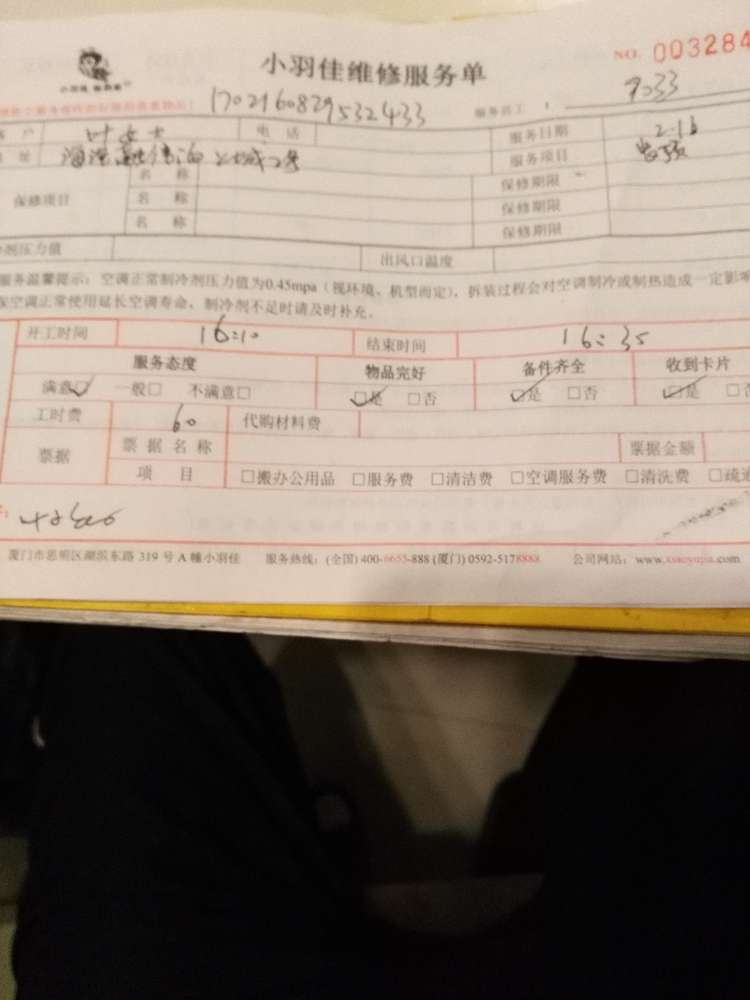 小羽佳维修服务单
NO. 003284
1702160829532433
服务员工： 9033
户 叶女士 电 话 服务日期 2.16
址 服务项目
保修项目 名 称 保修期限
名 称 保修期限
名 称 保修期限
剂压力值 出风口温度
服务温馨提示：空调正常制冷剂压力值为0.45mpa（视环境、机型而定），拆装过程会对空调制冷或制热造成一定影
保空调正常使用延长空调寿命，制冷剂不足时请及时补充。
开工时间 16:10 结束时间 16:35
服务态度 物品完好 备件齐全 收到卡片
满意☑ 一般□ 不满意□ ☑是 □否 ☑是 □否 ☑是 □否
工时费 60 代购材料费
票据 票 据 名 称 票据金额
项 目 □搬办公用品 □服务费 □清洁费 □空调服务费 □清洗费 □疏通
厦门市思明区湖滨东路 319 号 A 幢小羽佳 服务热线：(全国) 400-6655-888 (厦门) 0592-5178888 公司网站：www.xiaoyujia.com